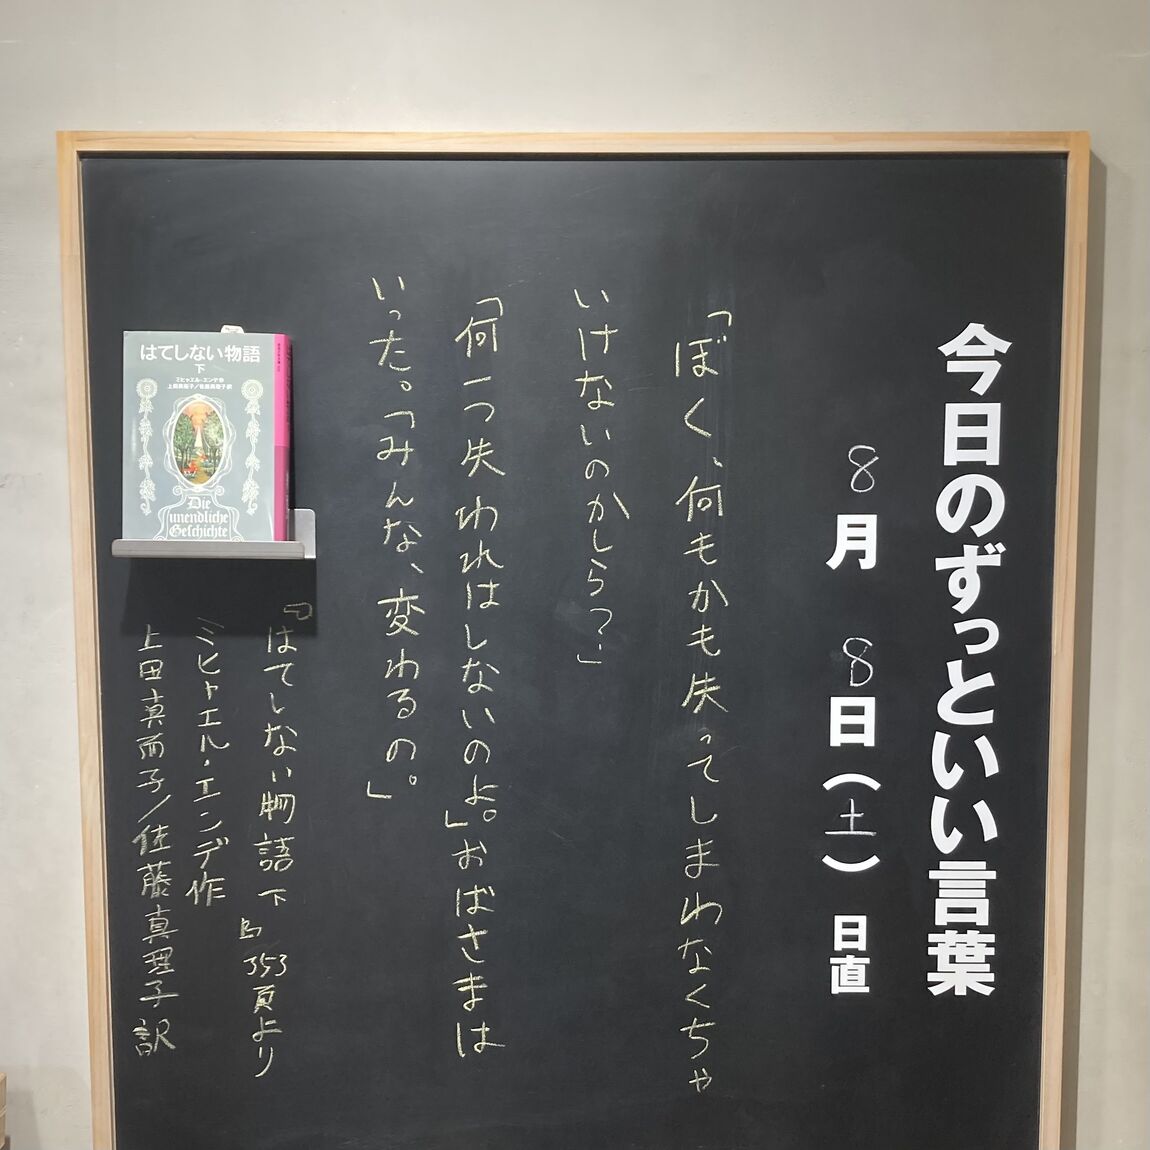 今日のずっといい言葉
8月 8日(土) 日直
「ぼく、何もかも失ってしまわなくちゃ
いけないのかしら?」
「何一つ失われはしないのよ。」おばさまは
いった。「みんな、変わるの。」
『はてしない物語 下
353頁より
ミヒャエル・エンデ作
上田真而子/佐藤真理子 訳
はてしない物語
下
ミヒャエル・エンデ作
上田真而子/佐藤真理子訳
Die
unendliche
Geschichte